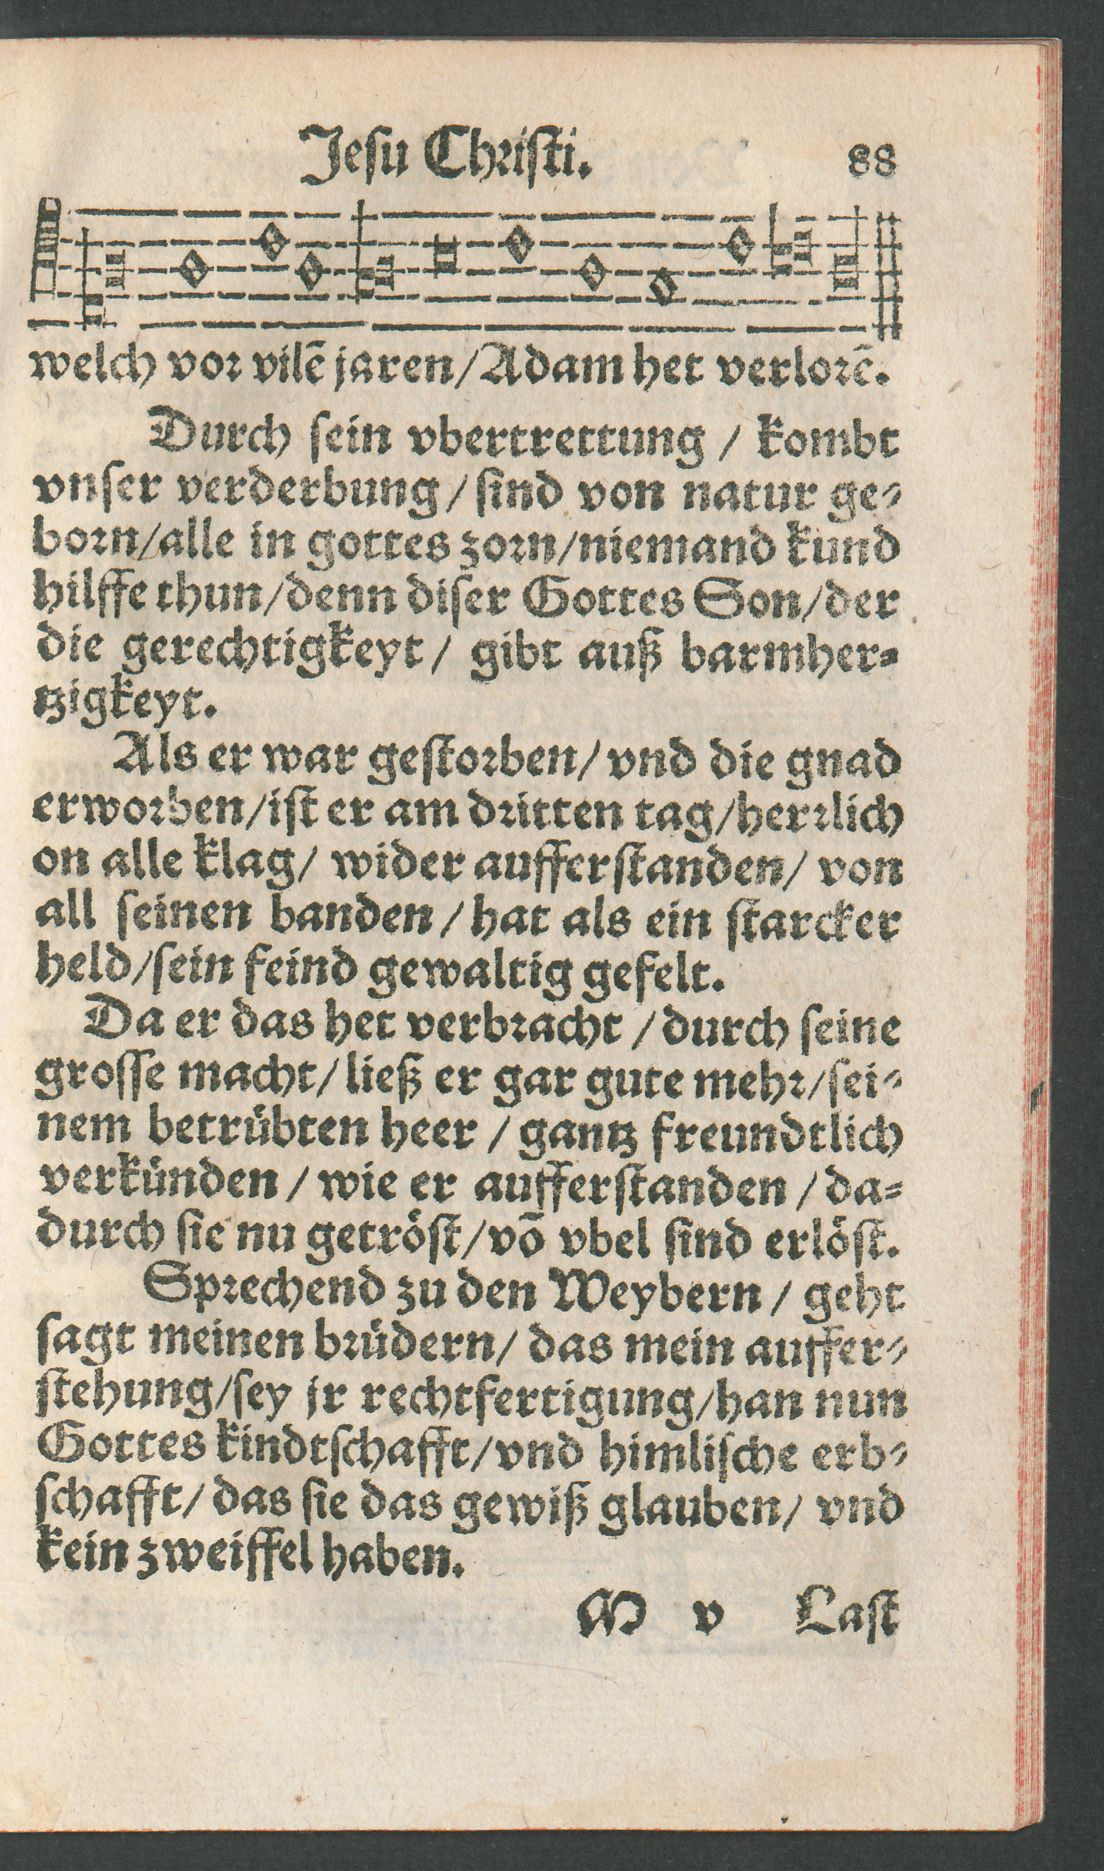 Jesu Christi. 88
welch vor vilẽ jaren/Adam het verlorẽ.
Durch sein vbertrettung / kombt
vnser verderbung/sind von natur ge-
born/alle in gottes zorn/niemand kund
hilffe thun/denn diser Gottes Son/der
die gerechtigkeyt/ gibt auß barmher-
tzigkeyt.
Als er war gestorben/vnd die gnad
erworben/ist er am dritten tag/herrlich
on alle klag/ wider aufferstanden/ von
all seinen banden/hat als ein starcker
held/sein feind gewaltig gefelt.
Da er das het verbracht /durch seine
grosse macht/ließ er gar gute mehr/sei-
nem betrübten heer / gantz freundtlich
verkünden/wie er aufferstanden/da-
durch sie nu getröst/võ vbel sind erlöst.
Sprechend zu den Weybern/ geht
sagt meinen brüdern/ das mein auffer-
stehung/sey jr rechtfertigung/han nun
Gottes kindtschafft/vnd himlische erb-
schafft/das sie das gewiß glauben/ vnd
kein zweiffel haben.
M v Last